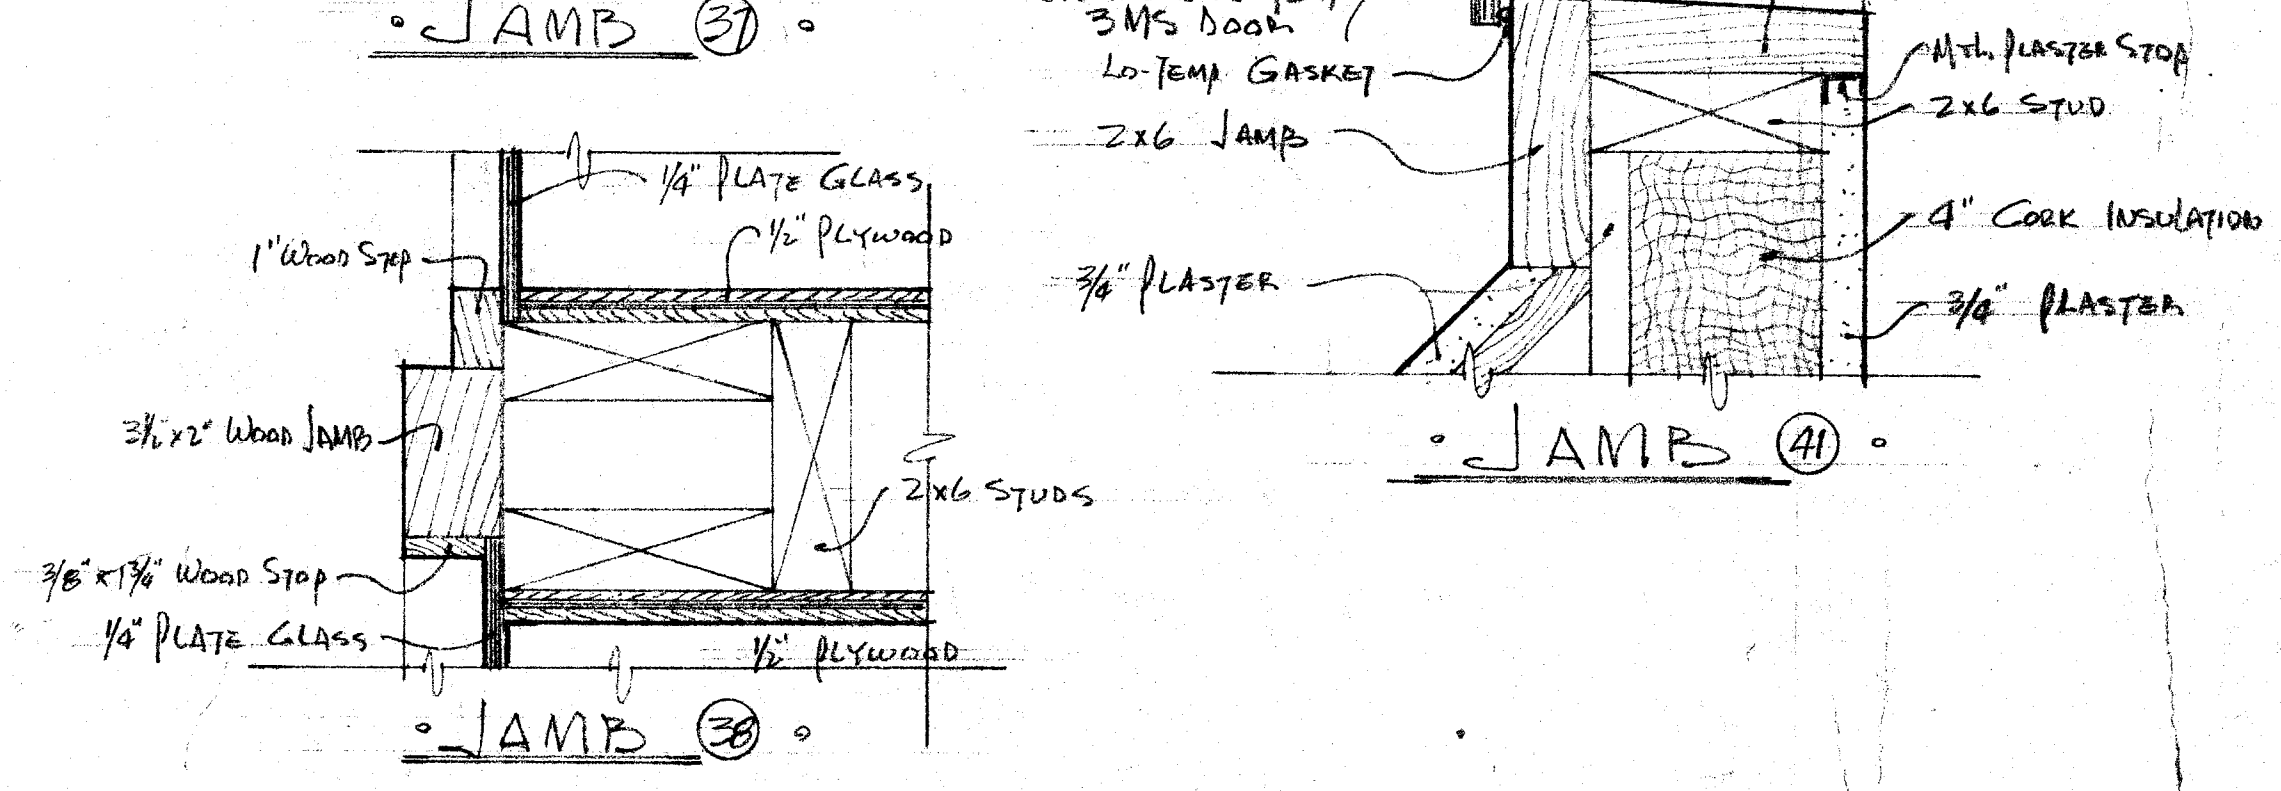 JAMB 37
1/4" PLATE GLASS
1/2" PLYWOOD
1" WOOD STOP
3 1/2" x 2" WOOD JAMB
2x6 STUDS
3/8" x 1 3/4" WOOD STOP
1/4" PLATE GLASS
1/2" PLYWOOD
JAMB 38
3MS DOOR
LO-TEMP GASKET
MTL. PLASTER STOP
2x6 STUD
2x6 JAMB
4" CORK INSULATION
3/4" PLASTER
3/4" PLASTER
JAMB 41